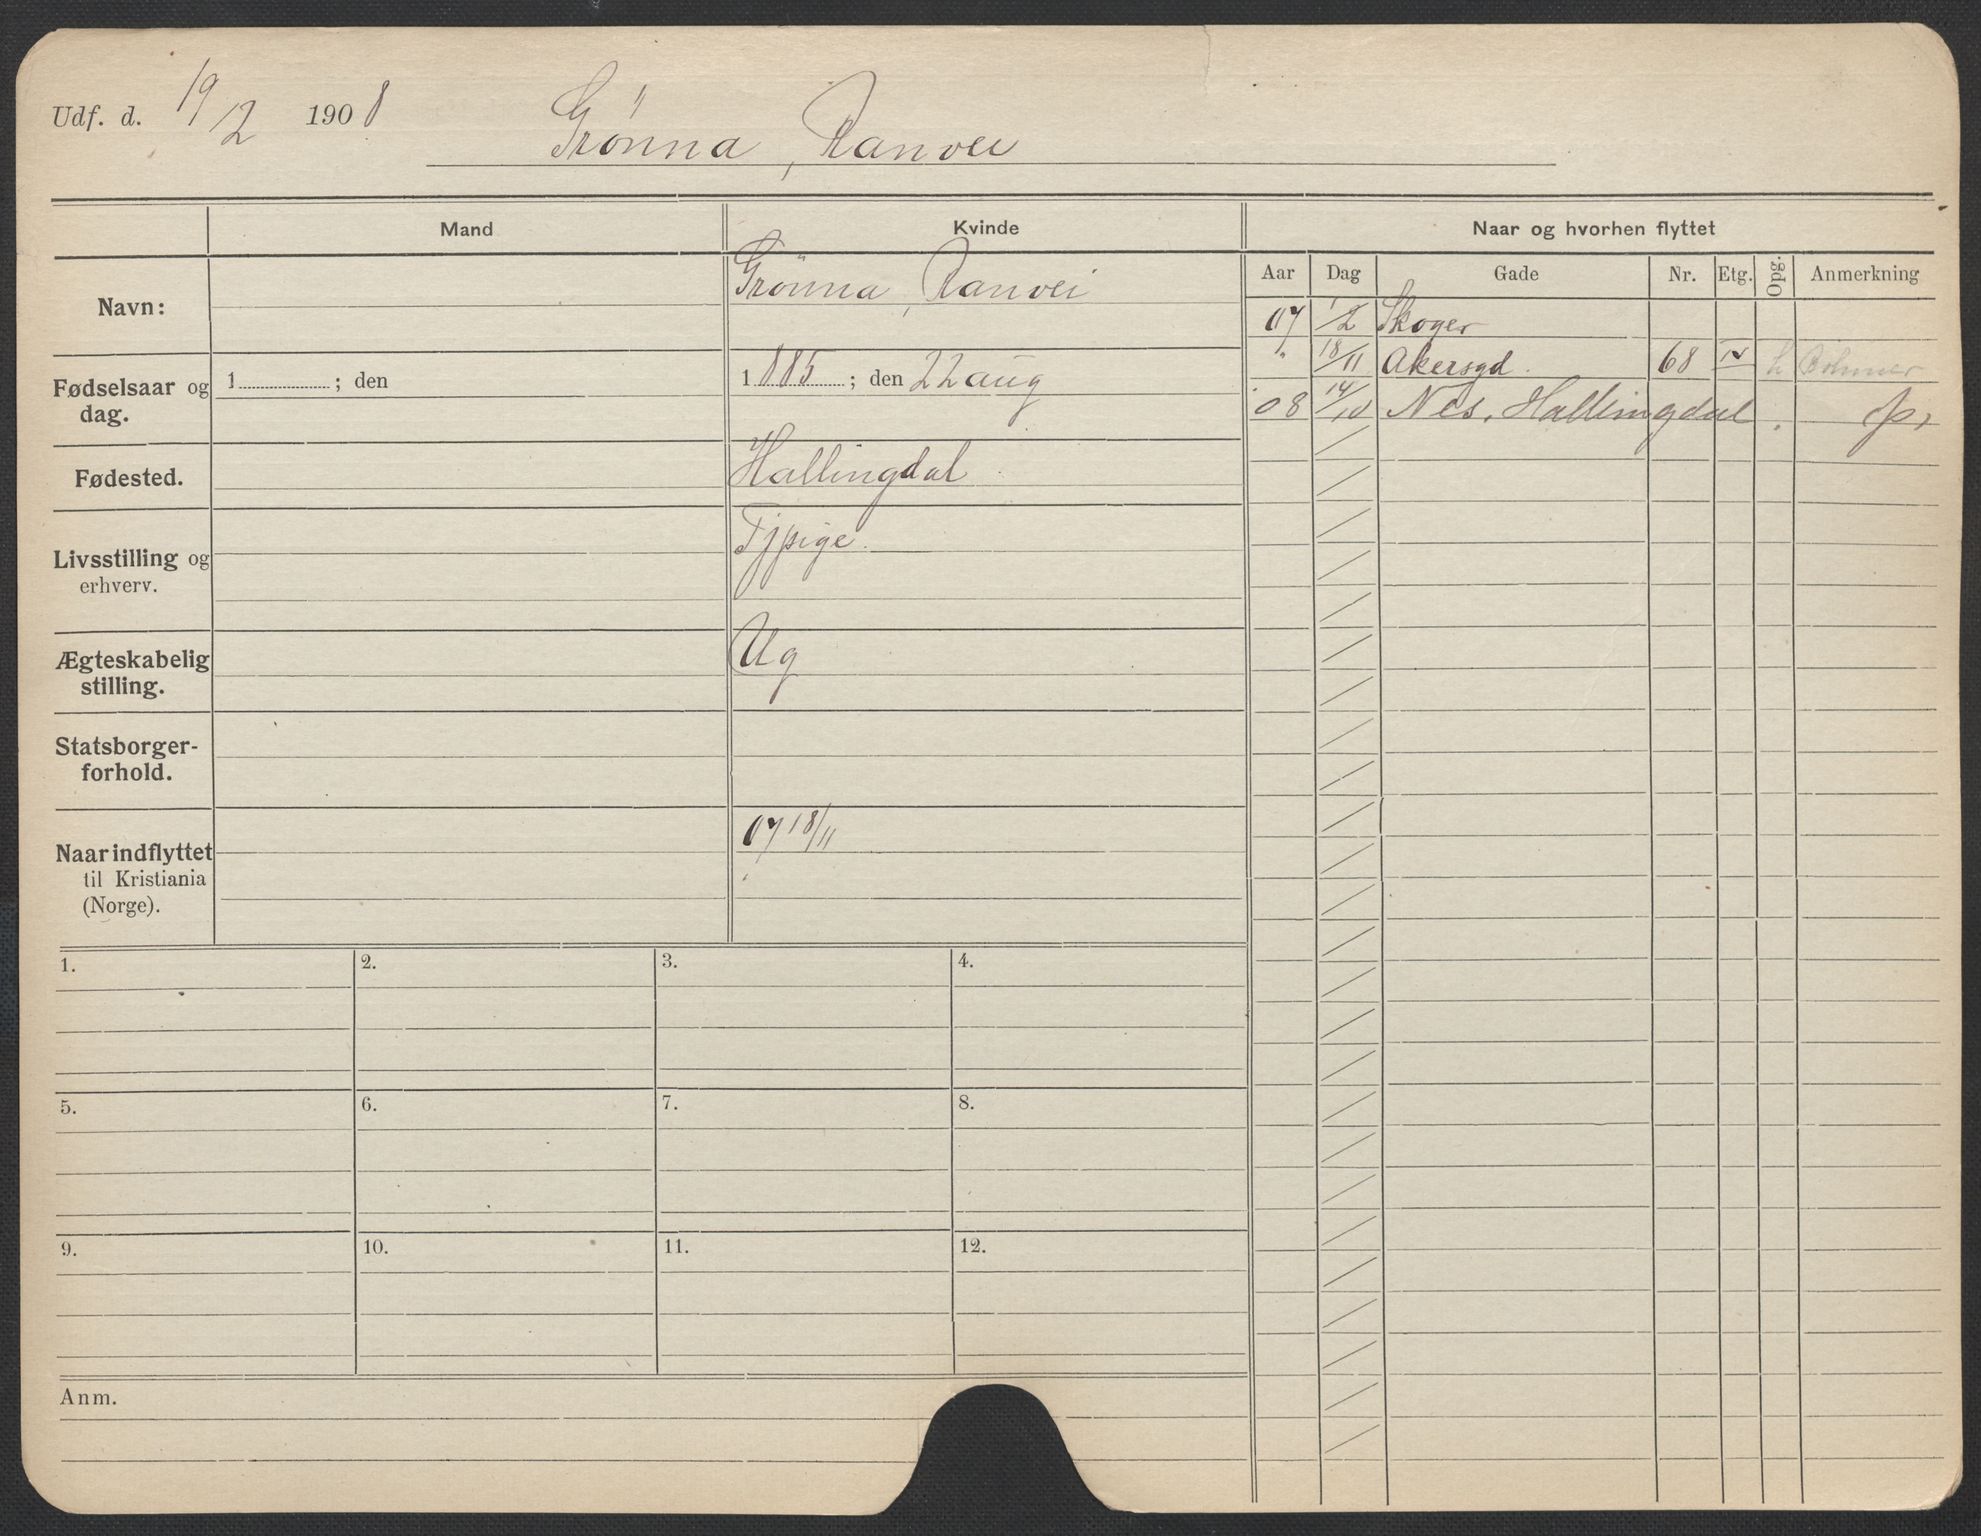 Udf. d. 19/2 1908 Grönna, Ranvei
Mand Kvinde Naar og hvorhen flyttet
Aar Dag Gade Nr. Etg. Opg. Anmerkning
Navn: Grönna, Ranvei
07 1/2 Skoger
" 18/11 Akersgd. 68 IV h Böhmer
08 14/10 Nes, Hallingdal
Fødselsaar og dag. 1 ; den 1885 ; den 22 aug
Fødested. Hallingdal
Livsstilling og erhverv. Tjpige
Ægteskabelig stilling. Ug
Statsborgerforhold.
Naar indflyttet til Kristiania (Norge). 07 18/11
1. 2. 3. 4.
5. 6. 7. 8.
9. 10. 11. 12.
Anm.